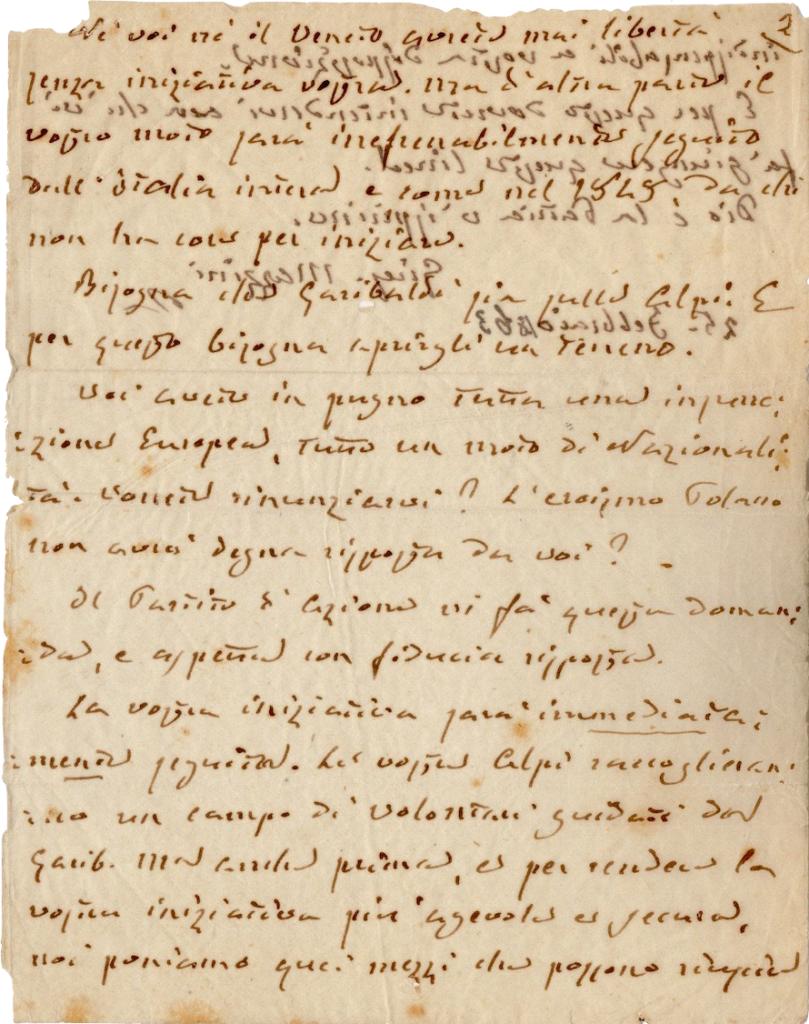 2
Nè voi nè il Veneto avrete mai libertà
senza iniziativa vostra. Ma d'altra parte il
vostro moto sarà irrefrenabilmente seguito
dall'Italia intera e come nel 1848 da chi
non ha core per iniziare.
Bisogna che Garibaldi sia sulle Alpi: E
per questo bisogna aprirgli un terreno.
Voi avete in pugno tutta una insurre:
:zione Europea, tutto un moto di Nazionali:
:tà. Vorrete rinunziarvi? L'eroismo Polacco
non avrà degna risposta da voi?
Il Partito d'Azione vi fa questa doman:
:da, e aspetta con fiducia risposta.
La vostra iniziativa sarà immediata:
:mente seguita. Le vostre Alpi raccoglieran:
:no un campo di volontari guidati da
Garib. Ma anche prima, e per rendere la
vostra iniziativa più agevole e secura,
noi poniamo quei mezzi che possono